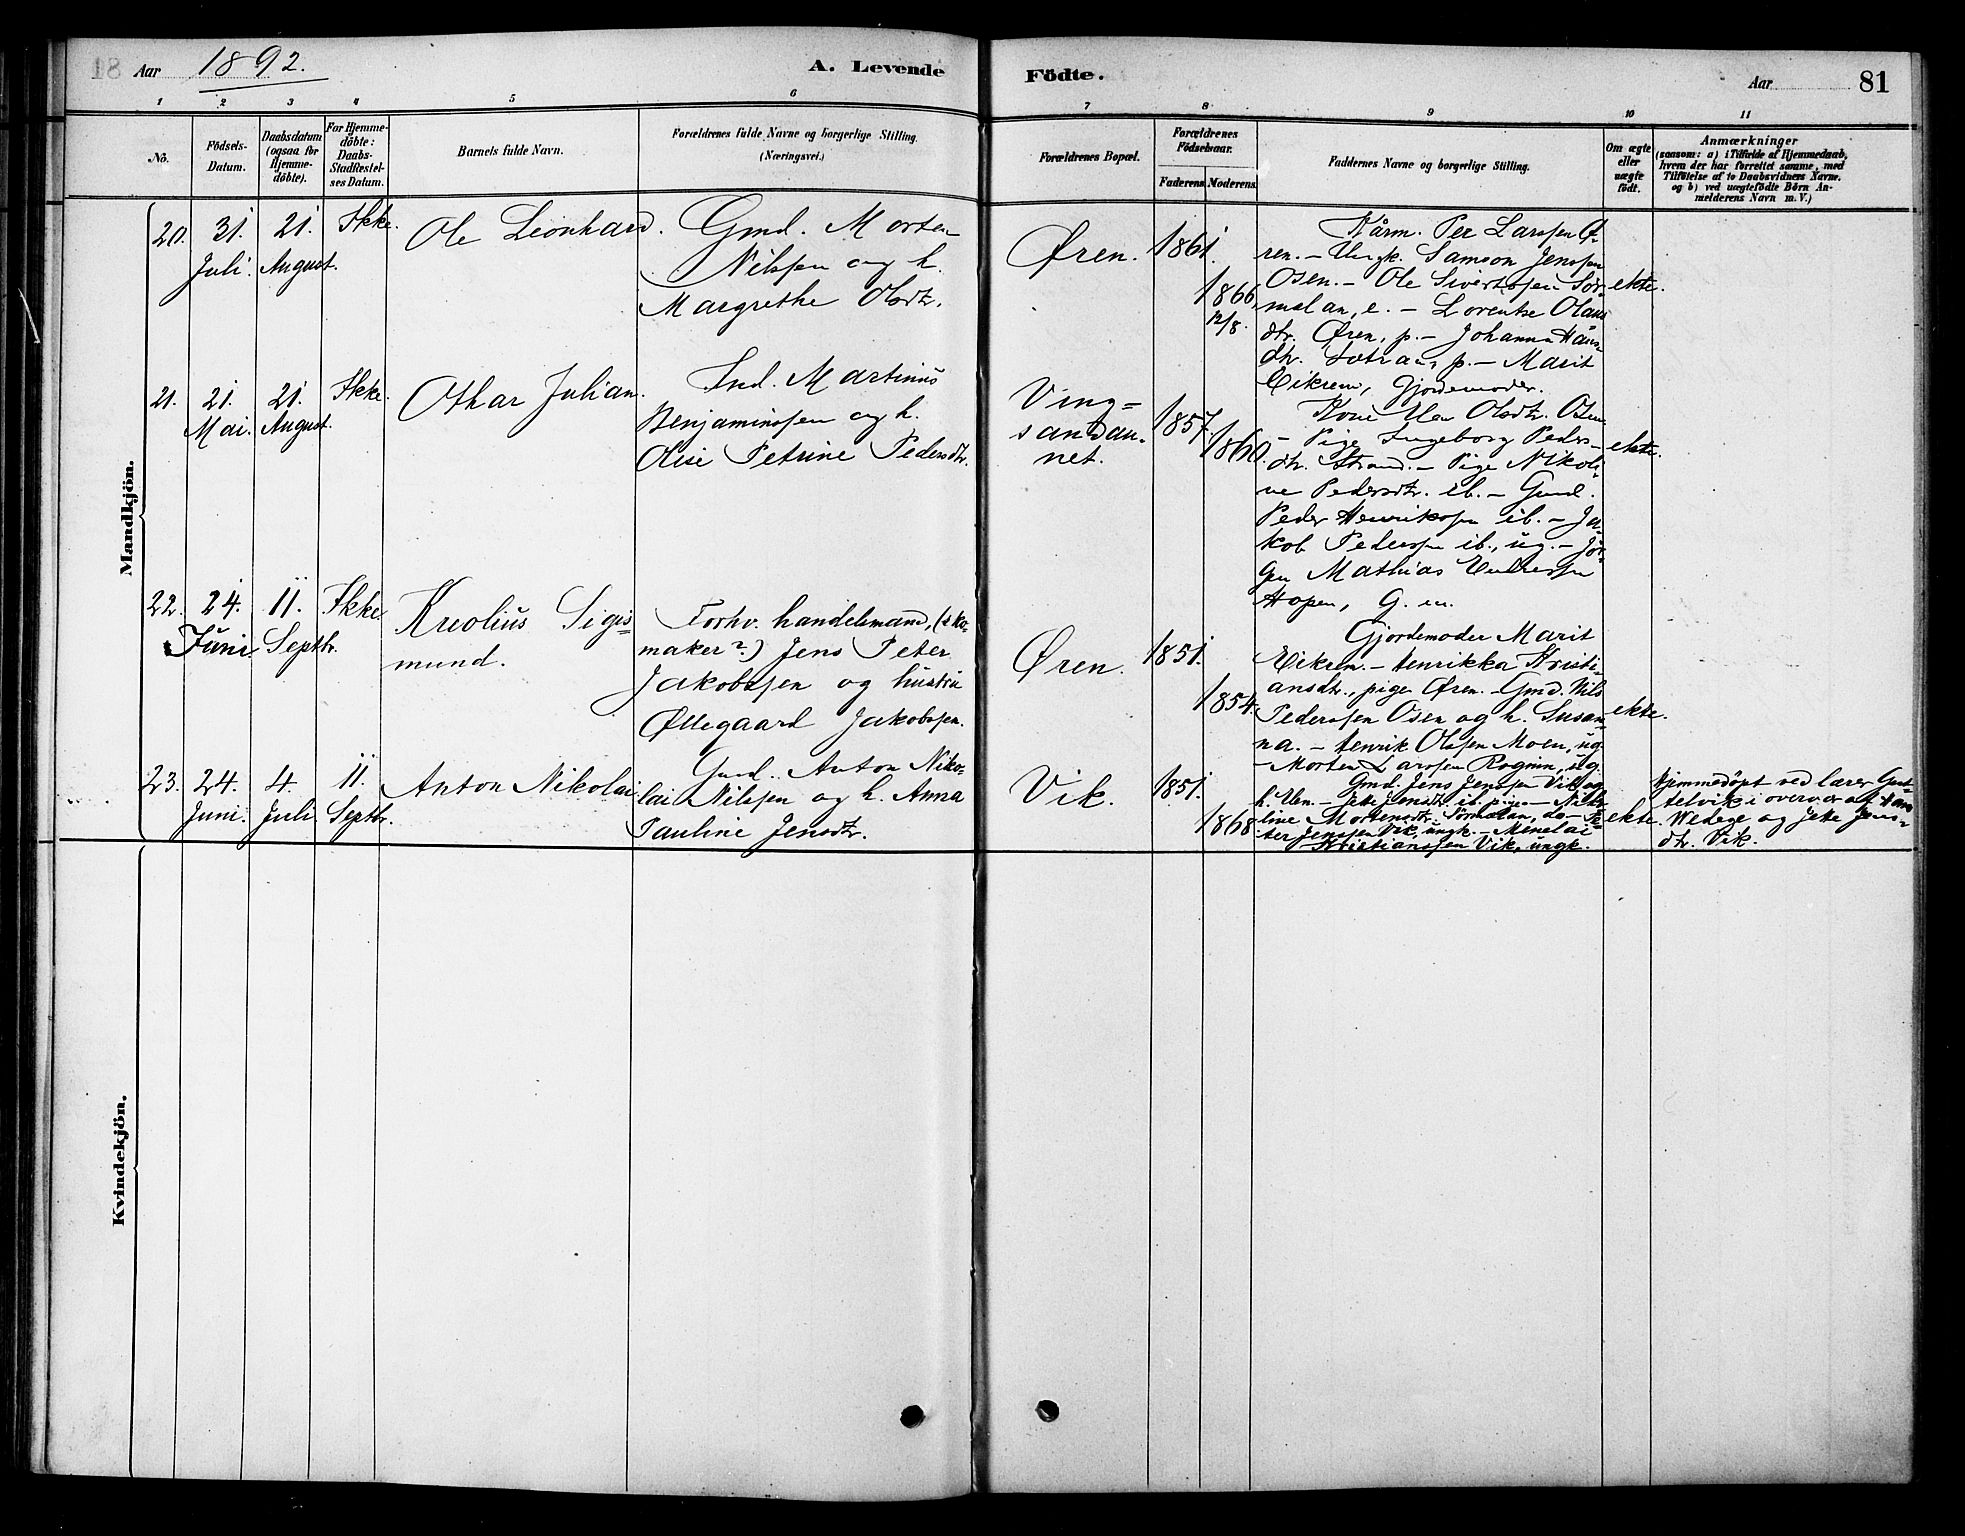 Aar 1892.
A. Levende
Födte.
Aar
81
1 2 3 4 5 6
7 8 9 10 11
No.
Födsels-
Datum.
Daabsdatum
(ogsaa for
Hjemme-
döbte).
For Hjemme-
döbte:
Daabs-
Stadfæstel-
ses Datum.
Barnets fulde Navn.
Forældrenes fulde Navne og borgerlige Stilling.
(Næringsvei.)
Forældrenes Bopæl.
Forældrenes
Födselsaar.
Faderens. Moderens.
Faddernes Navne og borgerlige Stilling.
Om ægte
eller
uægte
födt.
Anmærkninger
(saasom: a) i Tilfælde af Hjemmedaab,
hvem der har forrettet samme, med
Tilföielse af to Daabsvidners Navne.
og b) ved uægtefödte Börn An-
melderens Navn m. V.)
Mandkjön.
20.
31.
Juli.
21.
August.
Ikke.
Ole Leonhard.
Gmd. Morten
Nilssen og h.
Margrethe Olsdtr.
Øren.
1861.
1866
12/8.
Kårm. Per Larssen Ø-
ren. - Ungk. Samson Jenssen
Osen. - Ole Sivertssen Sör-
malan, e. - Lorentse Olaus
dtr. Øren, p. - Johanna Hans-
dtr. Sætran, p. - Marit
Eikrem, Gjordemoder.
ekte.
21.
21.
Mai.
21.
August.
Ikke.
Othar Julian.
Ind. Martinus
Benjaminssen og h.
Olise Petrine Pedersdtr.
Ving-
sandan-
net.
1857.
1860.
Kone Olsdtr. Osen
- Pige Ingeborg Peders-
dtr. Strand. - Pige Nikoli-
ne Pedersdtr. ib. - Gmd.
Peder Henrikssen ib. - Ja-
kob Pederssen ib., ug. - Jör-
gen Mathias
Hopen, G. m.
ekte.
22.
24.
Juni.
11.
Septbr.
Ikke
Kreolius Sigis-
mund.
Forhv. handelsmand, (sko-
maker?) Jens Peter
Jakobssen og hustru
Øllegaard Jakobssen.
Øren.
1851.
1854.
Gjordemoder Marit
Eikrem. - Henrikka Kristi-
ansdtr., pige Øren. - Gmd. Nils
Pederssen Osen og h. Susan-
na. - Henrik Olssen Moen, ug.
- Morten Larssen Rognin, ug.
ekte.
23.
24.
Juni.
4.
Juli
11.
Septbr.
Anton Nikolai
Gmd. Anton Niko-
lai Nilssen og h. Anna
Pauline Jensdtr.
Vik.
1851.
1868.
Gmd. Jens Jenssen Vik og
h. - Jette Jensdtr. ib. pige -
line Mortensdtr. Sörmalan, do - Pe-
ter Jenssen Vik, ungk. - Menelai
Kristianssen Vik, ungk.
ekte.
Hjemmedöpt ved lærer
i overvær af
Wedege og Jette Jens-
dtr. Vik.
Kvindekjön.